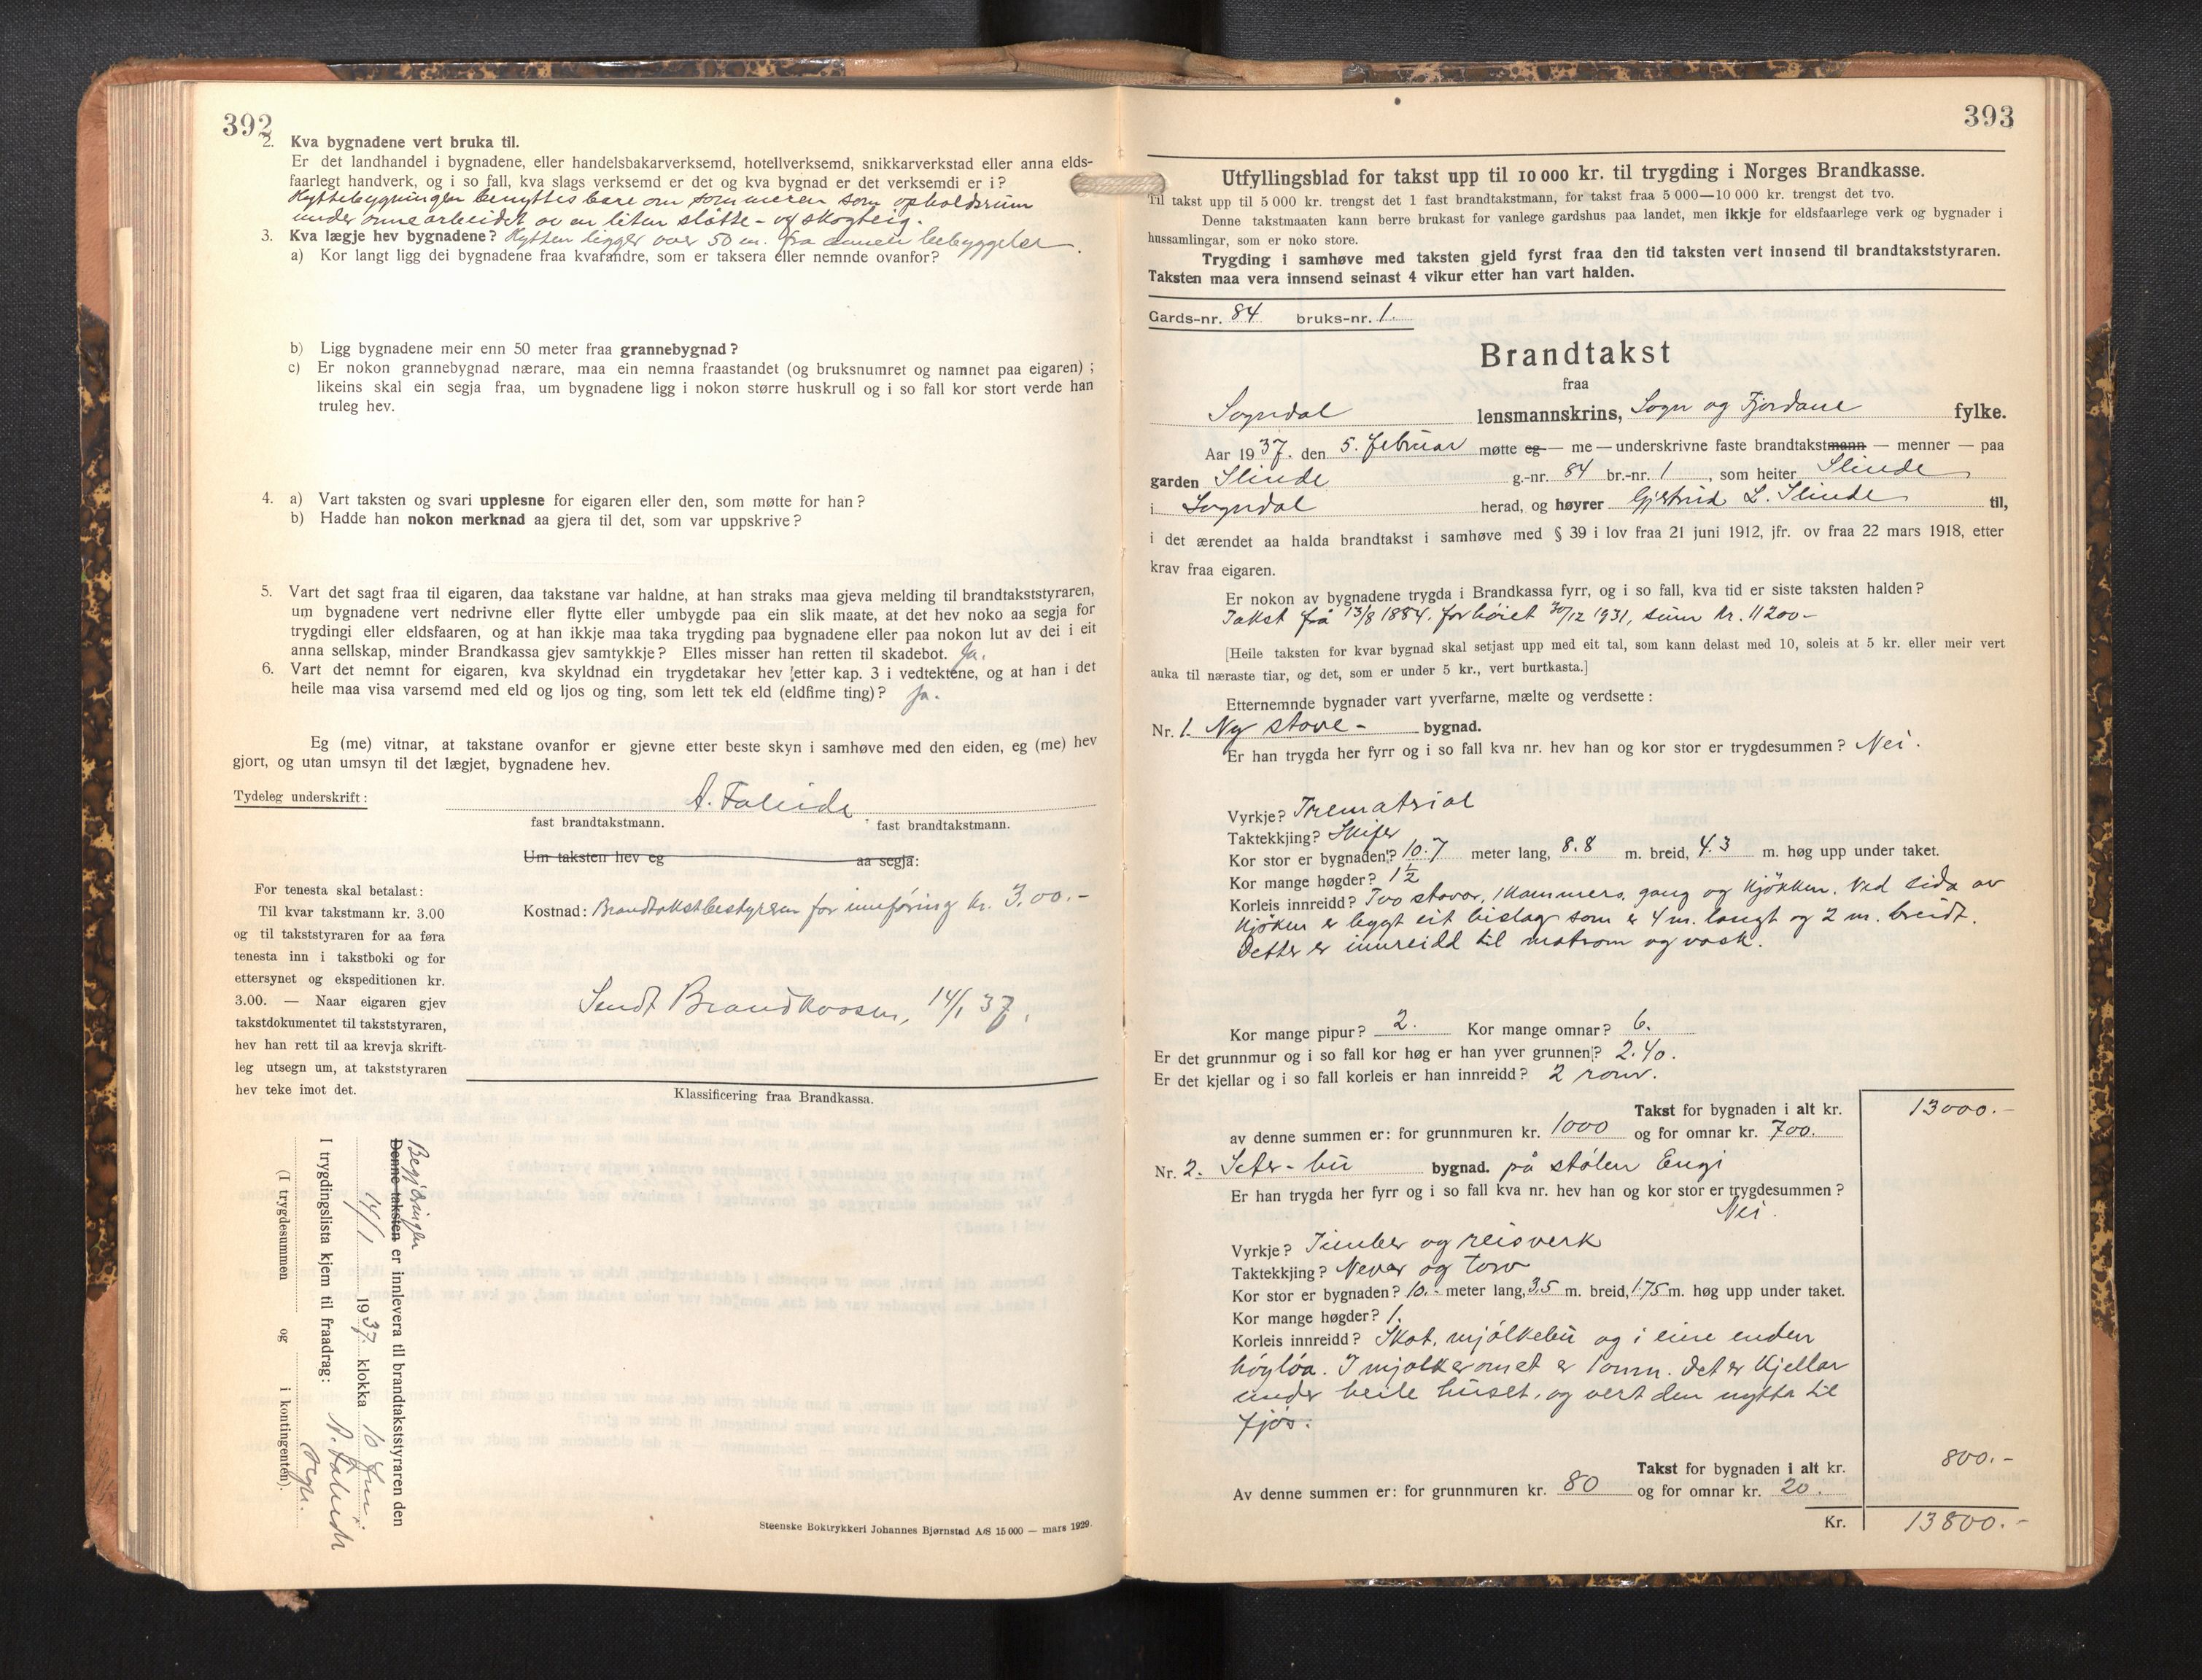 392
2. Kva bygnadene vert bruka til.
Er det landhandel i bygnadene, eller handelsbakarverksemd, hotellverksemd, snikkarverkstad eller anna elds-
faarlegt handverk, og i so fall, kva slags verksemd er det og kva bygnad er det verksemdi er i?
Hyttebygningen benyttes bare om sommeren som opholdsrum
under onnearbeidet av en liten slåtte- og skogteig.
3. Kva lægje hev bygnadene? Hytten ligger over 50 m. fra annen bebyggelse.
a) Kor langt ligg dei bygnadene fraa kvarandre, som er taksera eller nemnde ovanfor?
b) Ligg bygnadene meir enn 50 meter fraa grannebygnad?
c) Er nokon grannebygnad nærare, maa ein nemna fraastandet (og bruksnumret og namnet paa eigaren);
likeins skal ein segja fraa, um bygnadene ligg i nokon større huskrull og i so fall kor stort verde han
truleg hev.
4. a) Vart taksten og svari upplesne for eigaren eller den, som møtte for han?
b) Hadde han nokon merknad aa gjera til det, som var uppskrive?
5. Vart det sagt fraa til eigaren, daa takstane var haldne, at han straks maa gjeva melding til brandtakststyraren,
um bygnadene vert nedrivne eller flytte eller umbygde paa ein slik maate, at det hev noko aa segja for
trygdingi eller eldsfaaren, og at han ikkje maa taka trygding paa bygnadene eller paa nokon lut av dei i eit
anna sellskap, minder Brandkassa gjev samtykkje? Elles misser han retten til skadebot. Ja.
6. Vart det nemnt for eigaren, kva skyldnad ein trygdetakar hev etter kap. 3 i vedtektene, og at han i det
heile maa visa varsemd med eld og ljos og ting, som lett tek eld (eldfime ting)? Ja.
Eg (me) vitnar, at takstane ovanfor er gjevne etter beste skyn i samhøve med den eiden, eg (me) hev
gjort, og utan umsyn til det lægjet, bygnadene hev.
Tydeleg underskrift: A. Faleide
fast brandtakstmann. fast brandtakstmann.
Um taksten hev eg aa segja:
For tenesta skal betalast:
Til kvar takstmann kr. 3.00
og til takststyraren for aa føra
tenesta inn i takstboki og for
ettersynet og ekspeditionen kr.
3.00. — Naar eigaren gjev
takstdokumentet til takststyraren,
hev han rett til aa krevja skrift-
leg utsegn um, at takststyraren
hev teke imot det.
Kostnad: Brandtakstbestyreren for innføring kr. 3.00.-
Sendt Brandkassen, 14/1 37.
Klassificering fraa Brandkassa.
Begjæringen
Denne taksten er innlevera til brandtakststyraren den
14/1 1937. klokka 10 fm.
I trygdingslista kjem til fraadrag: A. Faleide
(I trygdesummen og i kontingenten).
Steenske Boktrykkeri Johannes Bjørnstad A/S 15 000 — mars 1929.
393
Utfyllingsblad for takst upp til 10 000 kr. til trygding i Norges Brandkasse.
Til takst upp til 5 000 kr. trengst det 1 fast brandtakstmann, for takst fraa 5 000—10 000 kr. trengst det tvo.
Denne takstmaaten kann berre brukast for vanlege gardshus paa landet, men ikkje for eldsfaarlege verk og bygnader i
hussamlingar, som er noko store.
Trygding i samhøve med taksten gjeld fyrst fraa den tid taksten vert innsend til brandtakststyraren.
Taksten maa vera innsend seinast 4 vikur etter han vart halden.
Gards-nr. 84 bruks-nr. 1.
Brandtakst
fraa
Sogndal lensmannskrins, Sogn og Fjordane fylke.
Aar 1937. den 5. februar møtte eg — me — underskrivne faste brandtakstmann — menner — paa
garden Slinde g.-nr. 84 br.-nr. 1, som heiter Slinde
i Sogndal herad, og høyrer Gjertrud L. Slinde til,
i det ærendet aa halda brandtakst i samhøve med § 39 i lov fraa 21 juni 1912, jfr. ov fraa 22 mars 1918, etter
krav fraa eigaren.
Er nokon av bygnadene trygda i Brandkassa fyrr, og i so fall, kva tid er siste taksten halden?
Takst frå 13/8 1884. forhöiet 30/12 1931, sum kr. 11200-
[Heile taksten for kvar bygnad skal setjast upp med eit tal, som kann delast med 10, soleis at 5 kr. eller meir vert
auka til næraste tiar, og det, som er under 5 kr., vert burtkasta.]
Etternemnde bygnader vart yverfarne, mælte og verdsette:
Nr. 1. Ny stove- bygnad.
Er han trygda her fyrr og i so fall kva nr. hev han og kor stor er trygdesummen? Nei.
Vyrkje? Trematrial
Taktekkjing? Skifer
Kor stor er bygnaden? 10.7 meter lang, 8.8 m. breid, 4.3 m. høg upp under taket.
Kor mange høgder? 1½
Korleis innreidd? Tvo stovor, 1 kammers, gang og kjøkken. Ved sida av
kjøken er bygt eit bislag som er 4 m. langt og 2 m. breidt.
Dette er innreidd til matrom og vask.
Kor mange pipur? 2. Kor mange omnar? 6.
Er det grunnmur og i so fall kor høg er han yver grunnen? 2.40.
Er det kjellar og i so fall korleis er han innreidd? 2 rom.
Takst for bygnaden i alt kr. 13000.-
av denne summen er: for grunnmuren kr. 1000 og for omnar kr. 700.
Nr. 2. Seter-bu bygnad. på stølen Engi
Er han trygda her fyrr og i so fall kva nr. hev han og kor stor er trygdesummen?
Nei.
Vyrkje? Timber og reisverk
Taktekkjing? Never og torv
Kor stor er bygnaden? 10.- meter lang, 3.5 m. breid, 1.75 m. høg upp under taket.
Kor mange høgder? 1.
Korleis innreidd? Skot, mjölkebu og i eine enden
höyløa. I mjølkeromet er 1 omn. Det er kjellar
under heile huset, og vert den nytta til
fjös.
Takst for bygnaden i alt kr. 800.-
Av denne summen er: for grunnmuren kr. 80 og for omnar kr. 20.
Kr. 13800.-